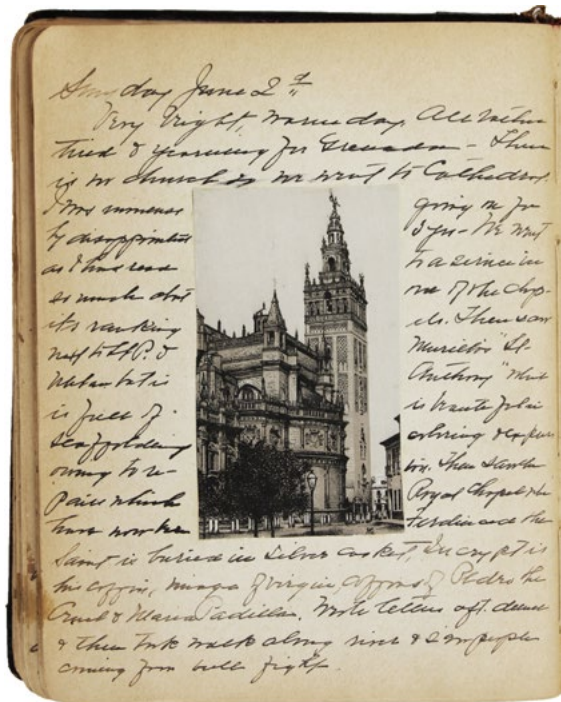 Sunday June 2d
Very bright, warm day. All rather
tired & yearning for Grenada - There
is no church so we went to Cathedral.
I was immense
ly disappointed
as I had read
so much abt
its ranking
next to St P. &
Milan but is
is full of
scaffolding
owing to re-
pairs which
have now been
going on for
3 yrs - We went
to a service in
one of the chap-
els. Then saw
Murillo's "St.
Anthony" which
is beautiful in
coloring & expres
sion. Then saw the
Royal Chapel where
Ferdinand the
Saint is buried in silver casket, In crypt is
his coffin, image of virgin, coffins of Pedro the
Cruel & Maria Padilla. Wrote letters aft. dinner
& then took walk along river & saw people
coming from bull fight.